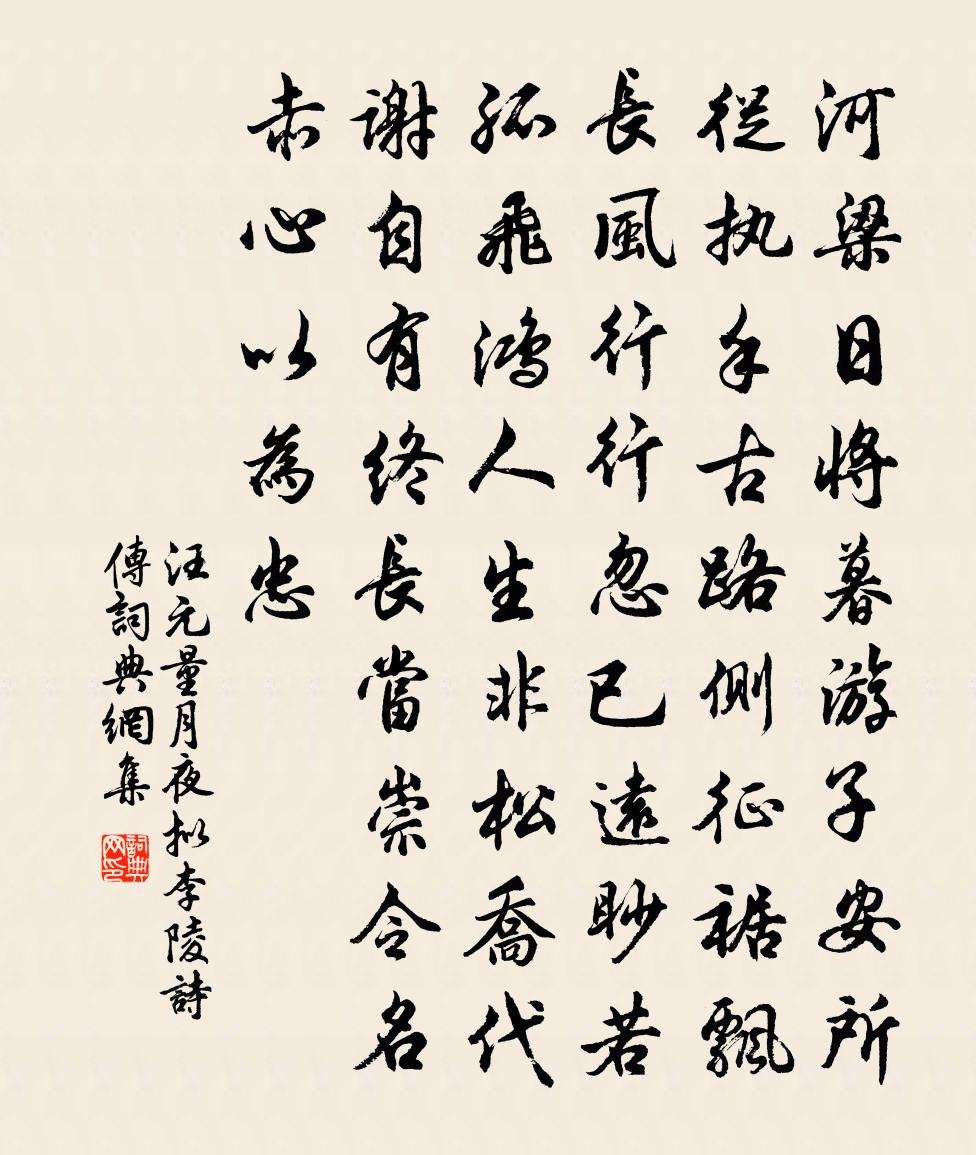 河梁日将暮游子安所
從执手古路侧征裾飄
長風行行忽已遠眇若
孤飛鴻人生非松喬代
謝自有终長當崇令名
赤心以為忠
汪元量月夜拟李陵詩
傳詞典網集
詞典网印